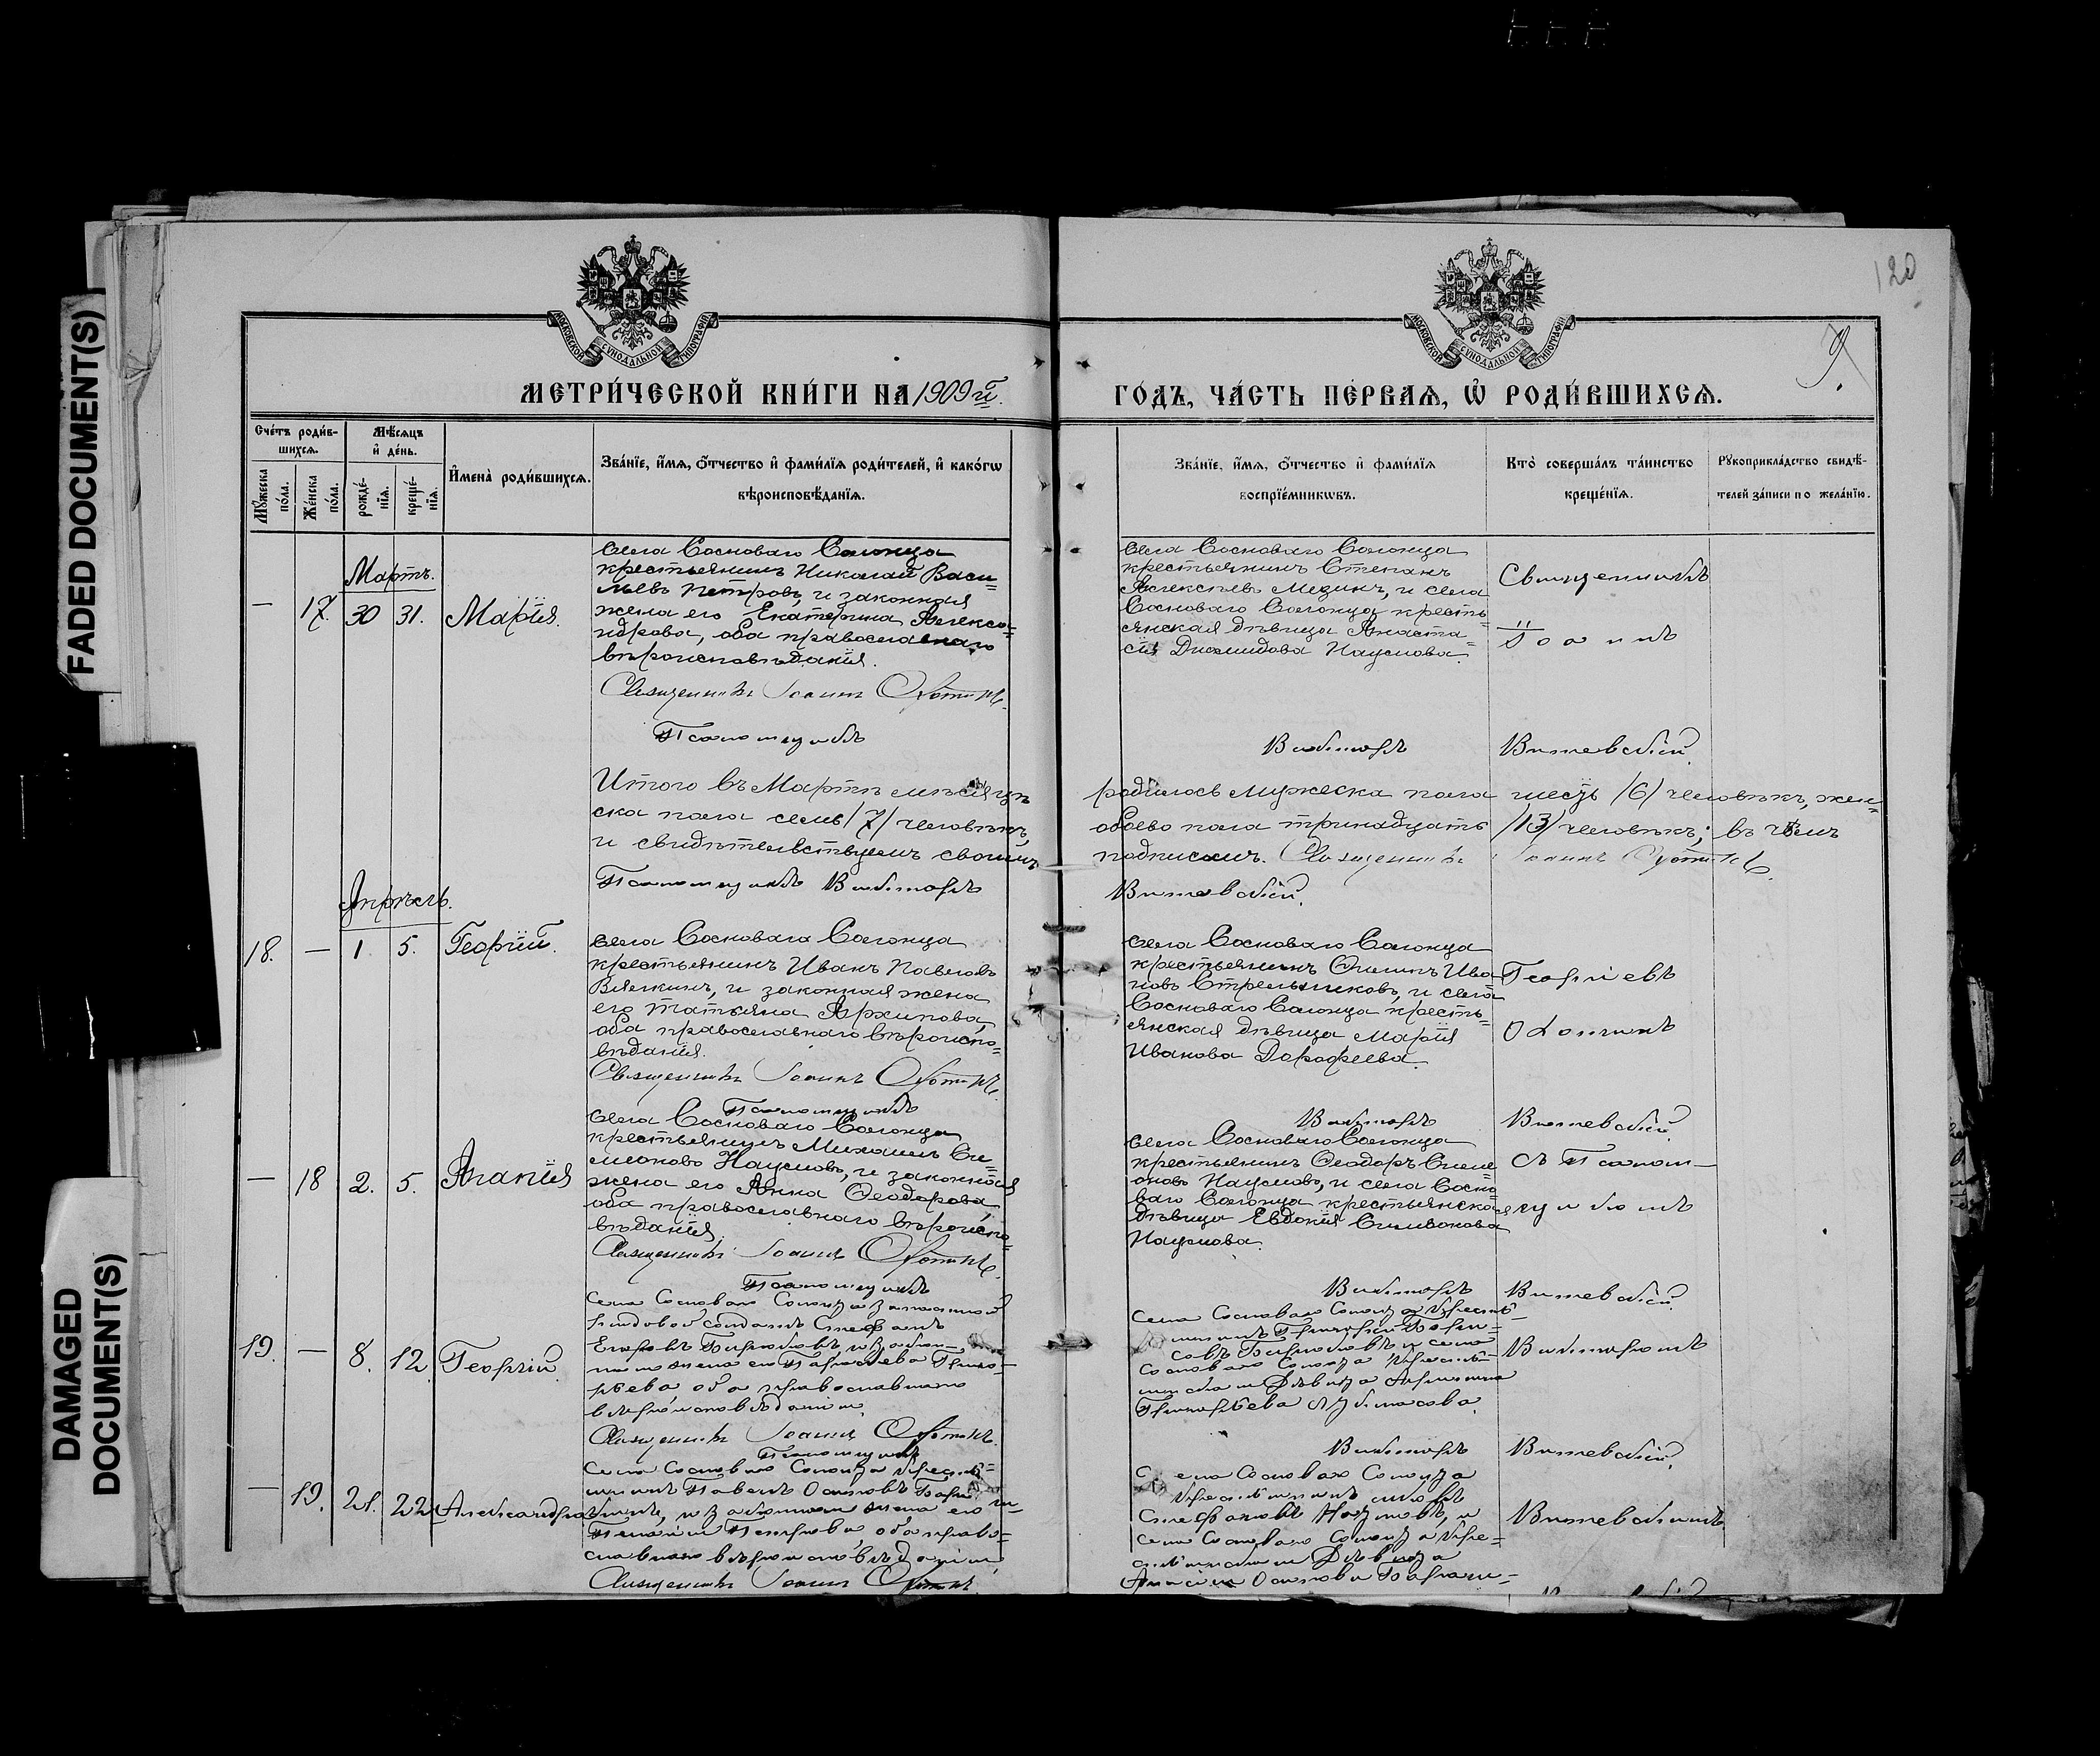 FADED DOCUMENT(S)
DAMAGED DOCUMENT(S)
120
9.
МОСКОВСКОЙ СѴНОДАЛЬНОЙ ТИПОГРАФІИ
МОСКОВСКОЙ СѴНОДАЛЬНОЙ ТИПОГРАФІИ
МЕТРИ́ЧЕСКОЙ КНИ́ГИ НА 1909й.
ГО́ДЪ, ЧА́СТЬ ПЕ́РВАѦ, Ѽ РОДИ́ВШИХСѦ.
Сче́тъ роди́в-
шихсѧ.
Мꙋ́жеска по́ла.
Же́нска по́ла.
Мѣ́сѧцъ
и҆ де́нь.
рожде́-
нїѧ.
креще́-
нїѧ.
И҆мена̀ роди́вшихсѧ.
Зва́нїе, и҆́мѧ, ѻ҆́тчество и҆ фами́лїѧ роди́телей, и҆ како́гѡ
вѣроисповѣ́данїѧ.
Зва́нїе, и҆́мѧ, ѻ҆́тчество и҆ фами́лїѧ
воспрїе́мникѡвъ.
Кто̀ соверша́лъ та́инство
креще́нїѧ.
Рꙋкоприкла́дство свидѣ́-
телей за́писи по жела́нїю.
Мартъ.
— 17. 30 31. Марія.
села Сосноваго Солонца
крестьянинъ Николай Васи=
льевъ Петровъ, и законная
жена его Екатерина Алекса=
ндрова, оба православнаго
вѣроисповѣданія.
Священникъ Іоаннъ
Псаломщикъ
села Сосноваго Солонца
крестьянинъ Степанъ
Алексѣевъ Мезинъ, и села
Сосноваго Солонца кресть=
янская дѣвица Анаста=
сія Диомидова Наумова.
Викторъ
Священникъ
Іоаннъ
Виневскій.
Итого въ Мартѣ мѣсяцѣ родилось мужеска пола шесть /6/ человѣкъ, жен=
ска пола семь /7/ человѣкъ, обоево пола тринадцать /13/ человѣкъ; въ чемъ
и свидѣтельствуемъ своимъ подписомъ. Священникъ Іоаннъ
Псаломщикъ Викторъ Виневскій.
Апрѣль.
18. — 1. 5. Георгій.
села Сосноваго Солонца
крестьянинъ Иванъ Павловъ
Вялкинъ, и законная жена
его Татьяна Архипова,
оба православнаго вѣроиспо=
вѣданія.
Священникъ Іоаннъ
Псаломщикъ
села Сосноваго Солонца
крестьянинъ Филипъ Ива=
новъ Стрельниковъ, и села
Сосноваго Солонца кресть=
янская дѣвица Марія
Иванова Дорофеева.
Викторъ
Георгіевъ
Виневскій.
— 18 2. 5. Агапія
села Сосноваго Солонца
крестьянинъ Михаилъ Си=
меоновъ Наумовъ, и законная
жена его Анна Ѳеодорова
оба православнаго вѣроиспо=
вѣданія.
Священникъ Іоаннъ
Псаломщикъ
села Сосноваго Солонца
крестьянинъ Ѳеодоръ Симе=
оновъ Наумовъ, и села Сосно=
ваго Солонца крестьянская
дѣвица Евдокія Симеонова
Наумова.
Викторъ
съ Псалом—
щикомъ
Виневскій.
19. — 8. 12. Георгій.
Села Сосноваго Солонца запасной
Стефанъ
Егоровъ
оба православнаго
вѣроисповѣданія.
Священникъ Іоаннъ
Псаломщикъ
Села Сосноваго Солонца крестья=
села
Сосноваго Солонца крестьян=
ская дѣвица
Григорьева
Викторъ
Викторомъ
Виневскій.
— 19. 21. 22 Александра
Села Сосноваго Солонца крестья=
нинъ Павелъ Осиповъ
жена его
Петрова, оба право=
славнаго вѣроисповѣданія.
Священникъ Іоаннъ
Села Сосноваго Солонца
крестьянинъ
Стефановъ Наумовъ, и
села Сосноваго Солонца кре=
стьянская дѣвица
Осипова
Виневскимъ